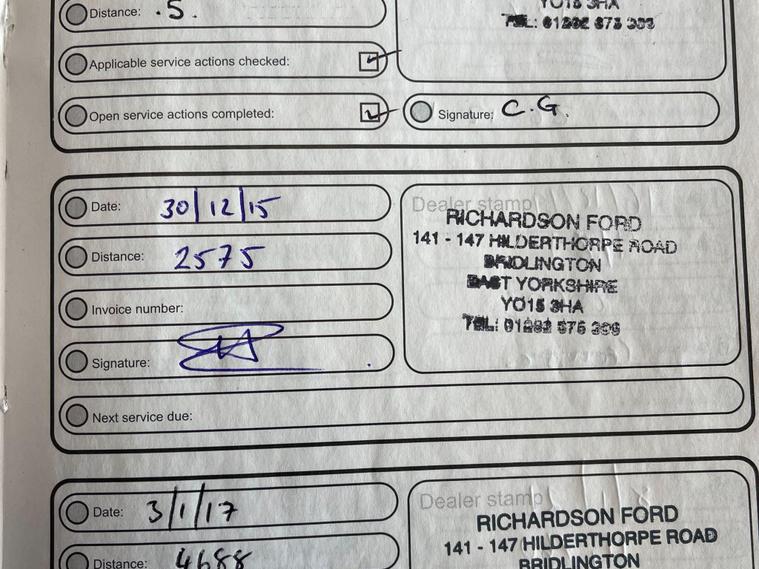 Distance: .5.
YO15 3HA
Applicable service actions checked:
Open service actions completed:
Signature: C.G.
Date: 30/12/15
Distance: 2575
Invoice number:
Signature:
Next service due:
Dealer stamp
RICHARDSON FORD
141 - 147 HILDERTHORPE ROAD
BRIDLINGTON
EAST YORKSHIRE
YO15 3HA
TEL:
Date: 3/1/17
Distance: 4688
Dealer stamp
RICHARDSON FORD
141 - 147 HILDERTHORPE ROAD
BRIDLINGTON